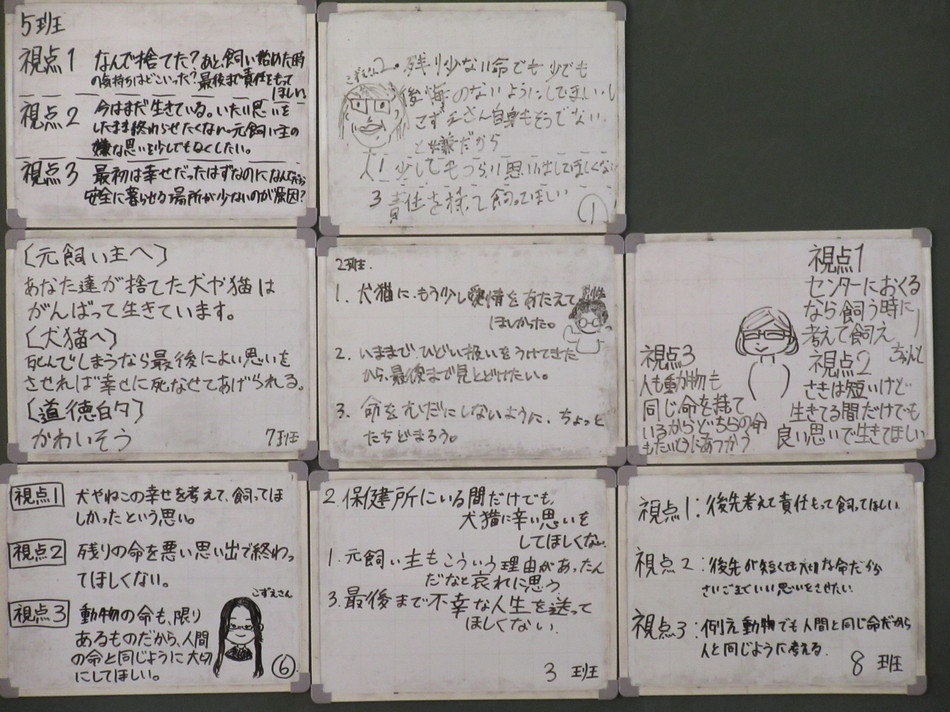 5班
視点1 なんで捨てた?あと飼い始めた時
の気持ちはどこいった?最後まで責任をもって
ほしい
視点2 今はまだ生きている。いたい思いを
したまま終わらせたくない。元飼い主の
嫌な思いを少しでもなくしたい。
視点3 最初は幸せだったはずなのになんだろう
安全に暮らせる場所が少ないのが原因?
2. 残り少ない命でも少でも
後悔のないようにしてほしい
こずえさん自身もそうでない
と嫌だから
1 少しでもつらい思いはしてほしくない
3 責任を持って飼ってほしい
①
[元飼い主へ]
あなた達が捨てた犬や猫は
がんばって生きています。
[犬猫へ]
死んでしまうなら最後によい思いを
させれば幸せに死なせてあげられる。
[道徳的]
かわいそう
7班
2班.
1. 犬猫に、もう少し愛情をあたえて
ほしかった。
2. いままで、ひどい扱いをうけてきた
から、最後まで見とどけたい。
3. 命をむだにしないように、ちょっと
たちどまろう。
視点1
センターにおくる
なら飼う時に
考えて飼え
ちゃんと
視点2
さきは短いけど
生きてる間だけでも
良い思いで生きてほしい
視点3
人も動物も
同じ命を持て
いるからどちらの命
もたいせつにあつかう
視点1 犬やねこの幸せを考えて、飼ってほ
しかったという思い。
視点2 残りの命を悪い思い出で終わっ
てほしくない。
視点3 動物の命も、限り
あるものだから、人間
の命と同じように大切
にしてほしい。
こずえさん
⑥
2. 保健所にいる間だけでも、
犬猫に辛い思いを
してほしくない。
1. 元飼い主もこういう理由があったん
だなと哀れに思う
3. 最後まで不幸な人生を送って
ほしくない.
3 班
視点1:後先考えて責任もって飼ってほしい
視点2:後先が短くて大切な命だから
さいごまでいい思いをさせたい.
視点3:例え動物でも人間と同じ命だから
人と同じように考える.
8 班